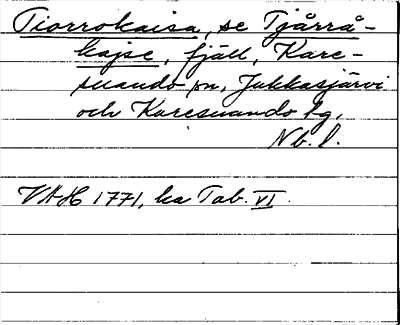 Tiorrokaisa, se Tjårrå-
kajse, fjäll, Kare-
suando sn, Jukkasjärvi
och Karesuando tg,
Nb. l.
VAH 1771, ka Tab. VI.